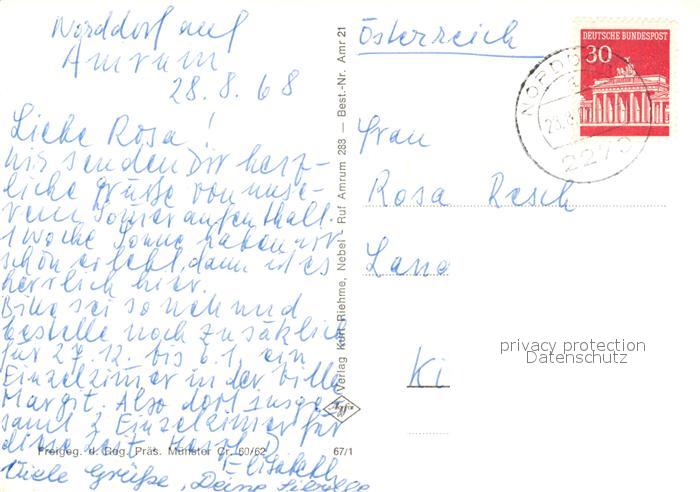 Norddorf auf
Amrum
28.8.68
Liebe Rosa!
Wir senden Dir herz-
liche Grüße von unse-
rem Sommeraufenthalt.
1 Woche Sonne haben wir
schon erlebt, dann ist es
herrlich hier.
Bitte sei so nett und
bestelle noch zusätzlich
für 27.12. bis 6.1. ein
Einzelzimmer in der Villa
Margit. Also dort insge-
samt 2 Einzelzimmer für
diese Zeit.
Elisabeth
Viele Grüße, Deine
Freigeg. d. Reg. Präs. Münster Cr. 60/62
67/1
Verlag Kurt Riehme, Nebel - Ruf Amrum 283 — Best.-Nr. Amr 21
Österreich
DEUTSCHE BUNDESPOST
30
NORDDO
2270
Frau
Rosa Resch
Land
Ki
privacy protection
Datenschutz